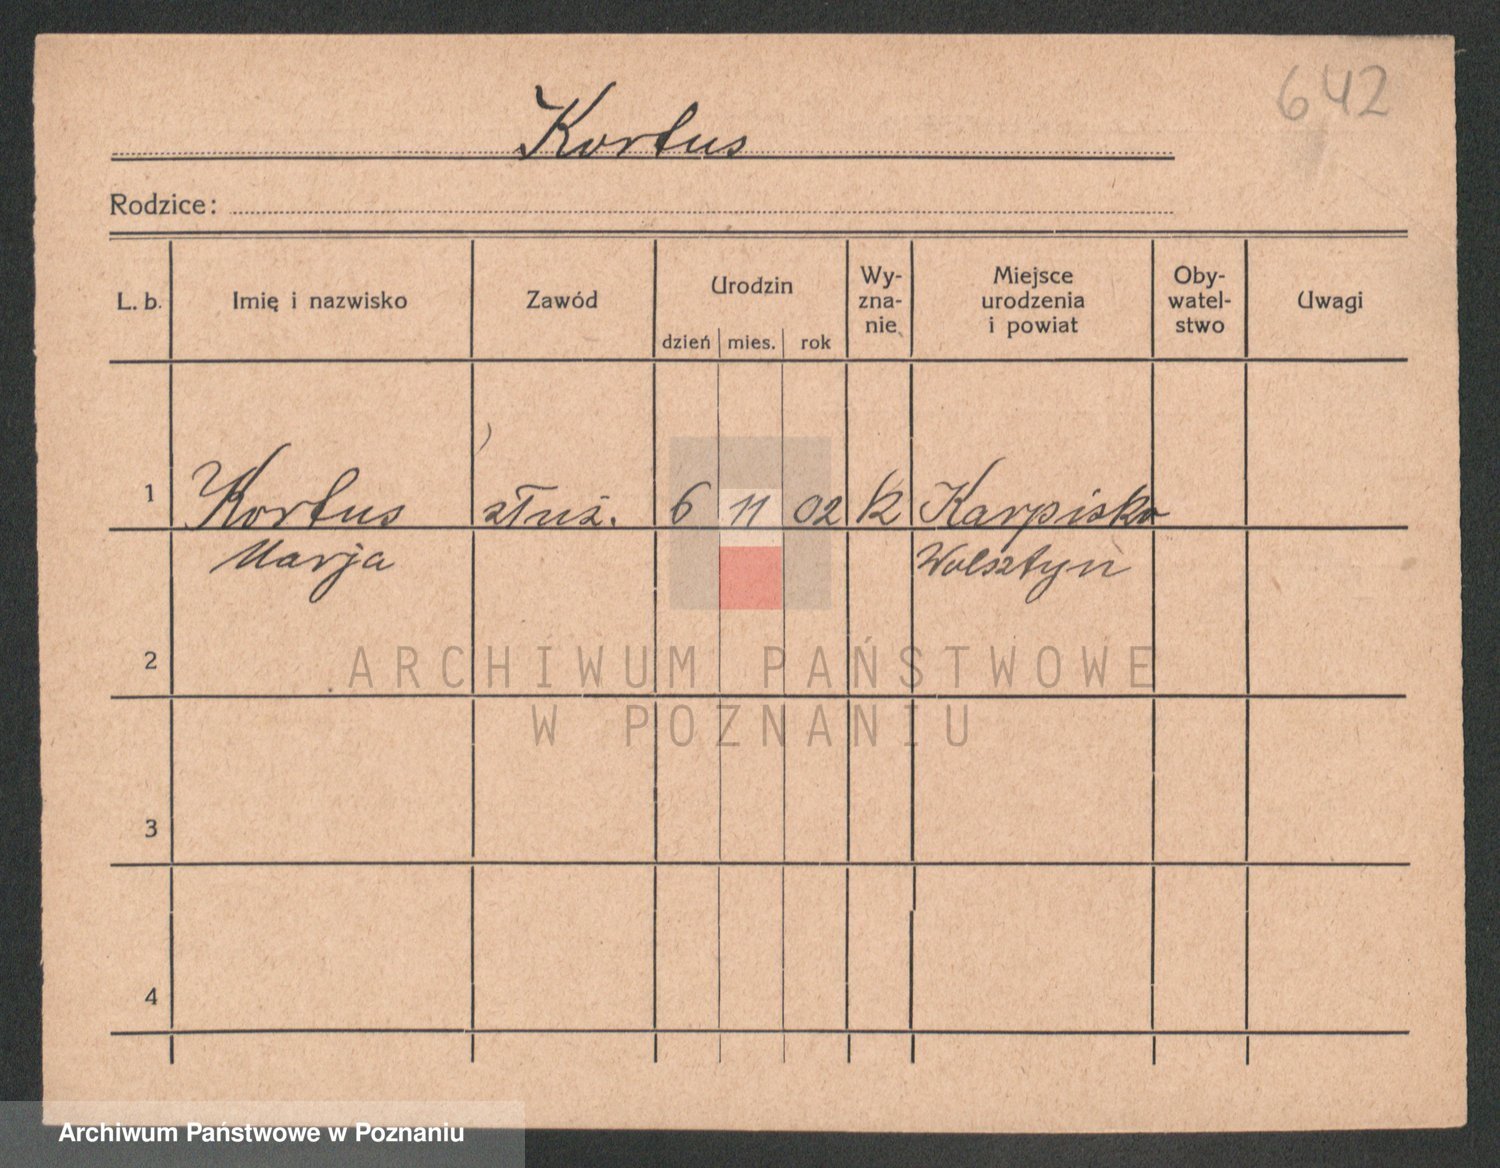 642
Kortus
Rodzice:
L. b. Imię i nazwisko Zawód Urodzin dzień mies. rok Wy-zna-nie Miejsce urodzenia i powiat Oby-watel-stwo Uwagi
1 Kortus służ. 6 11 02 k Karpisko
Marja Wolsztyn
2
ARCHIWUM PAŃSTWOWE
W POZNANIU
3
4
Archiwum Państwowe w Poznaniu